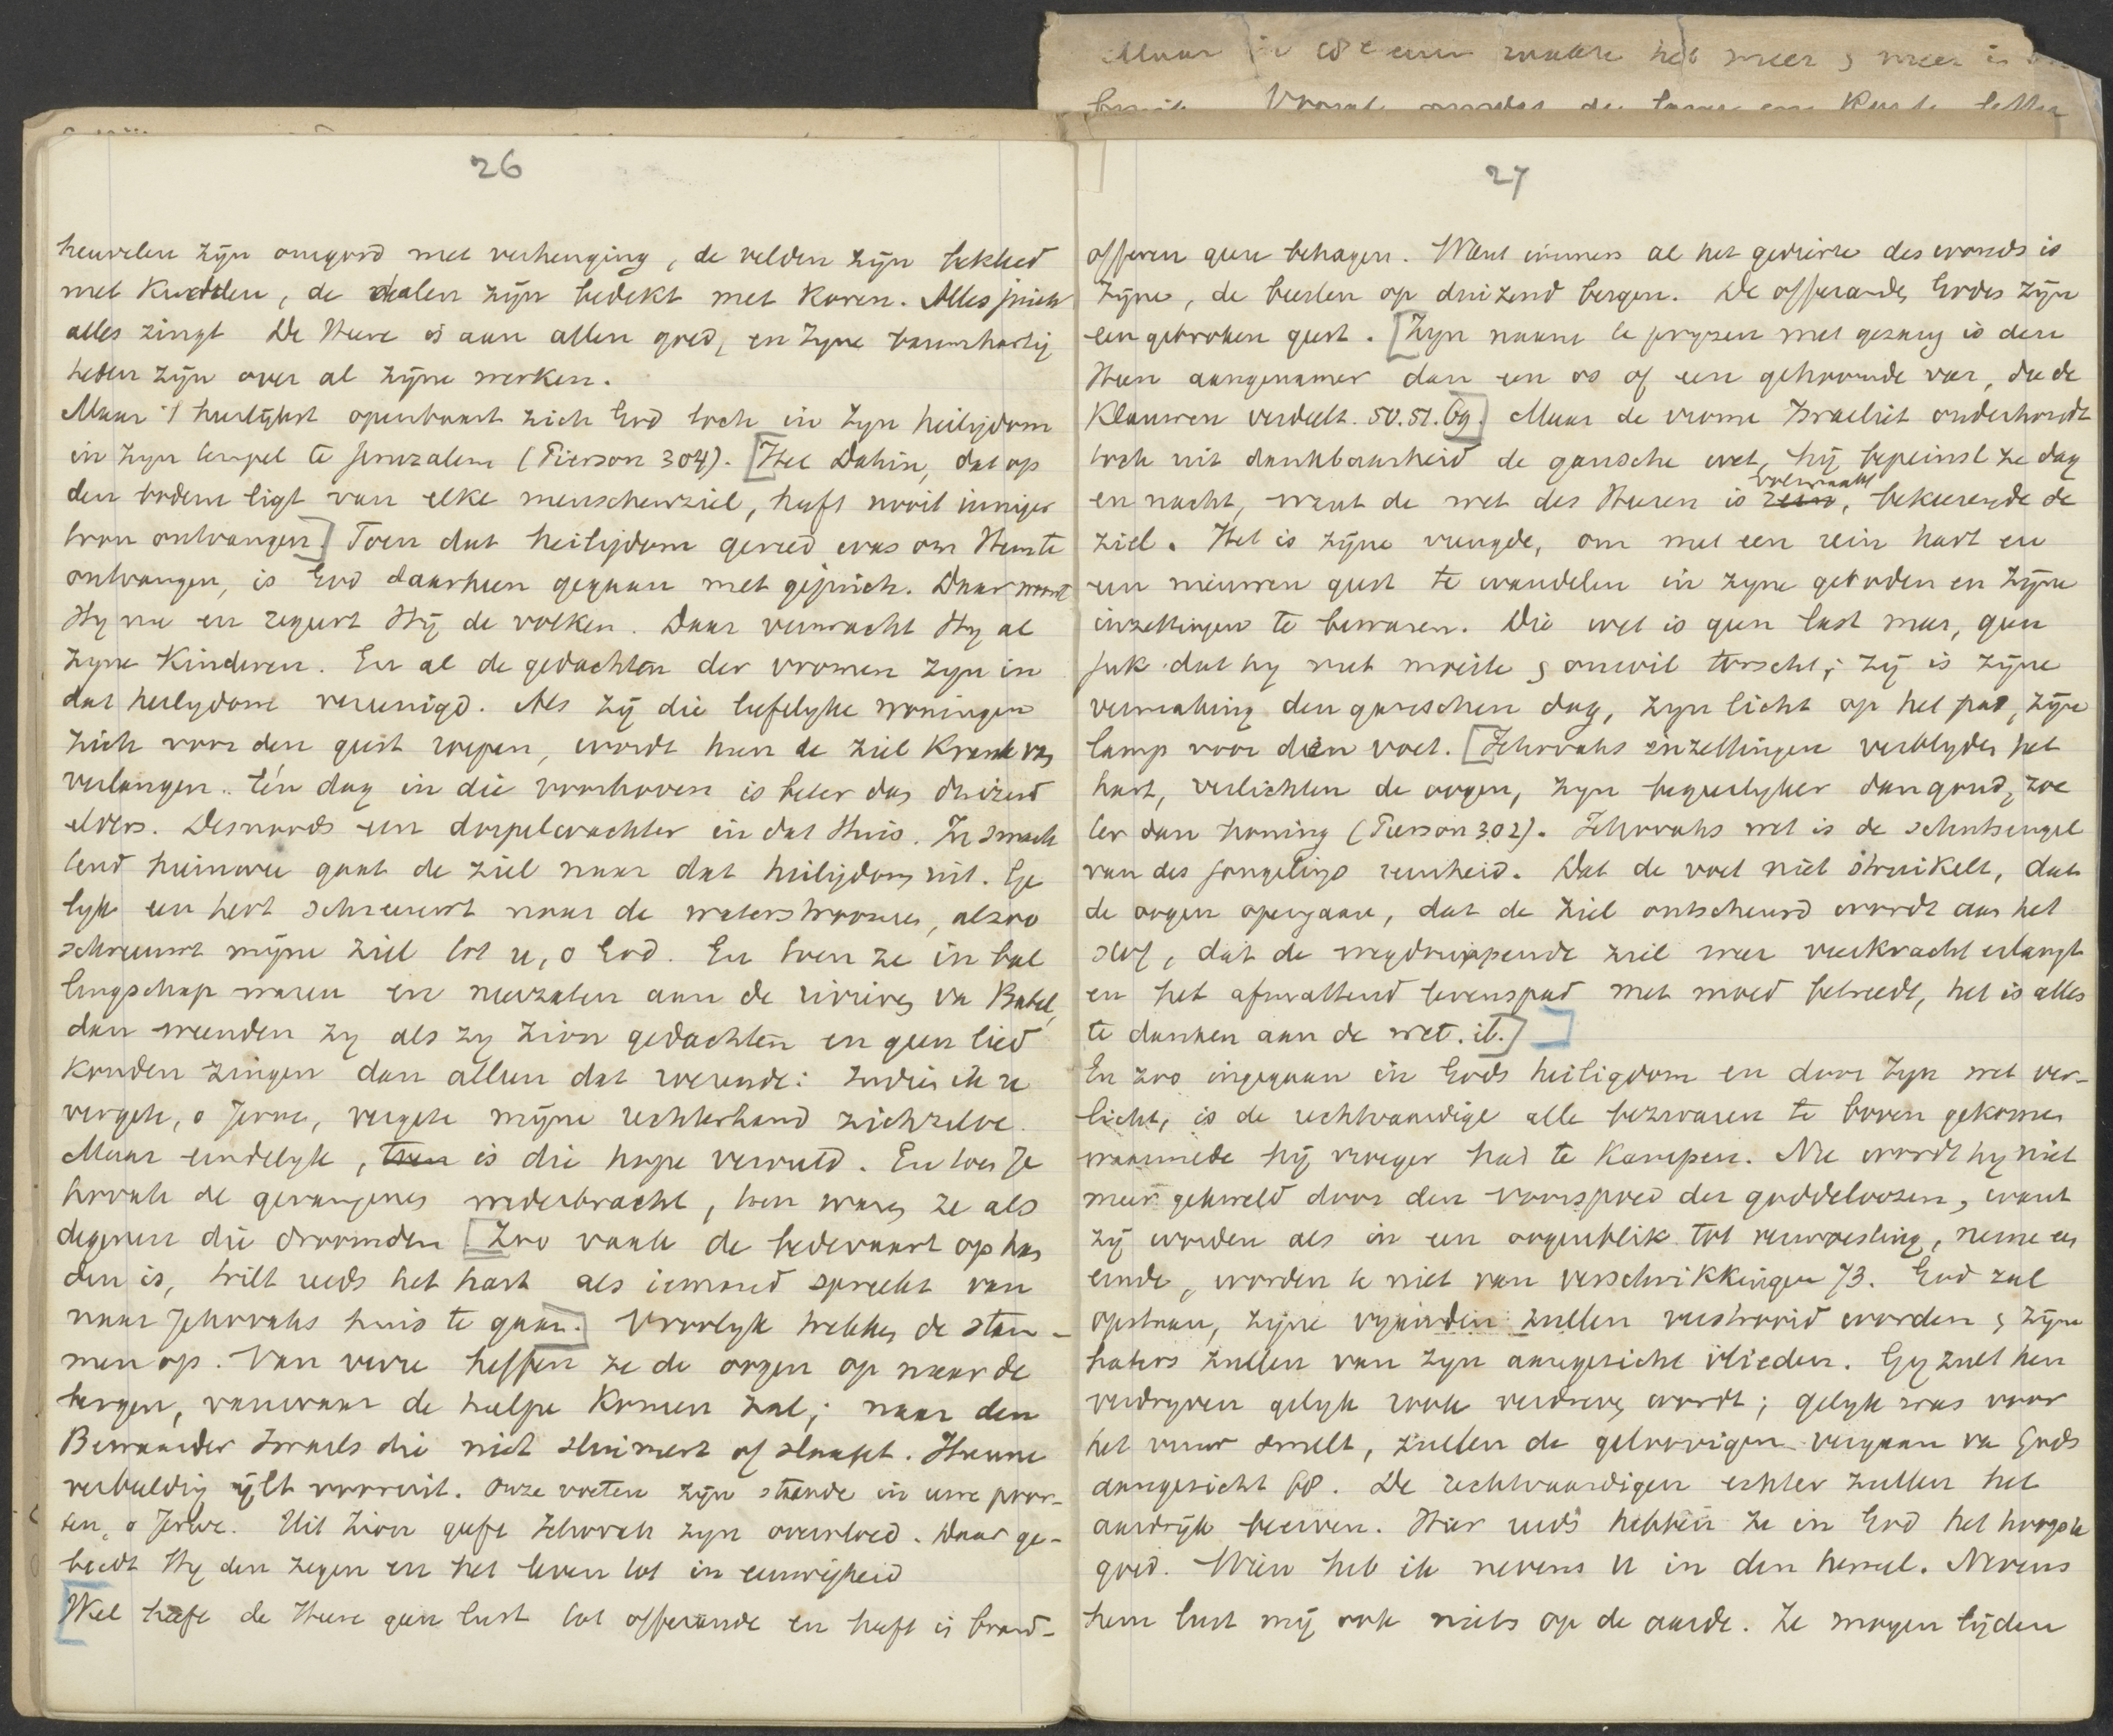 Maar in een zaak het meer & meer is
26
heuvelen zijn omgord met verheuging, de velden zijn bekleed
met Kudden, de dalen zijn bedekt met Koren. Alles juich
alles zingt De Heere is aan allen goed, en Zyne barmhartig
heden zijn over al zijne werken.
Maar 't heerlijkst openbaart zich God toch in Zyn heiligdom
in Zyn tempel te Jeruzalem (Pierson 304). [Het Dahin, dat op
den bodem ligt van elke menschenziel, heeft nooit inniger
toon ontvangen.] Toen dat heiligdom gereed was om Hem te
ontvangen, is God daarheen gegaan met gejuich. Daar woont
Hy nu en regeert Hij de volken. Daar verwacht Hy al
Zyne Kinderen. En al de gedachten der vromen zyn in
dat heiligdom vereenigd. Als zij die liefelyke woningen
zich voor den geest roepen, wordt hun de ziel Krank van
verlangen. Eén dag in die voorhoven is beter dan duizend
elders. Desnoods een dorpelwachter in dat Huis. Ze smach
tend heimwee gaat de ziel naar dat heiligdom uit. Ge
lyk een hert schreeuwt naar de waterstroomen, alzoo
schreeuwt mijne ziel tot u, o God. En toen ze in bal
lingschap waren en neerzaten aan de rivieren va Babel,
dan weenden zy als zy Zion gedachten en geen lied
Konden zingen dan alleen dat roerende: Indien ik u
vergete, o Jerus, vergete mijne rechterhand zichzelve.
Maar eindelyk, toen is die hope vervuld. En toen Je
hovah de gevangenen wederbracht, toen waren ze als
degenen die droomden [Zoo vaak de bedevaart op han
den is, trilt reeds het hart als iemand spreekt van
naar Jehovahs huis te gaan.] Vroolyk trekken de stam-
men op. Van verre heffen ze de oogen op naar de
bergen, vanwaar de hulpe Komen zal; naar den
Bewaarder Israels die niet sluimert of slaapt. Hunne
verbeelding ijlt vooruit. Onze voeten zijn staande in uwe poor-
ten, o Jeruz. Uit Zion geeft Jehovah zyn overvloed. Daar ge-
biedt Hy den zegen en het leven tot in eeuwigheid
[Wel heeft de Heere geen lust tot offerande en heeft in brand-
27
offeren geen behagen. Want immers al het gedierte des wouds is
Zijne, de beesten op duizend bergen. De offeranden Gods zijn
een gebroken geest. [Zyn naam te pryzen met gezang is den
Heere aangenamer dan een os of een gehoornde var, die de
Klauwen verdeelt. 50. 51. 69.] Maar de vrome Israeliet onderhoudt
toch uit dankbaarheid de gansche wet, hij bepeinst ze dag
en nacht, want de wet des Heeren is rein volmaakt, bekeerende de
ziel. Het is zijne vreugde, om met een rein hart en
een nieuwen geest te wandelen in zyne geboden en zijne
inzettingen te bewaren. Die wet is geen last meer, geen
juk dat hy met moeite & onwil torscht; zij is zijne
vermaking den ganschen dag, zyn licht op het pad, zijne
lamp voor den voet. [Jehovahs inzettingen verblyden het
hart, verlichten de oogen, zyn begeerlyker dan goud, zoe
ter dan honing (Pierson 302). Jehovahs wet is de schutsengel
van des jongelings reinheid. Dat de voet niet struikelt, dat
de oogen opengaan, dat de ziel ontscheurd wordt aan het
stof, dat de wegdruippende ziel weer veerkracht erlangt
en het afmattend levenspad met moed betreedt, het is alles
te danken aan de wet. ib.]]
En zoo ingegaan in Gods heiligdom en door Zyn wet ver-
licht, is de rechtvaardige alle bezwaren te boven gekomen
waarmede hij vroeger had te Kampen. Nu wordt hy niet
meer gekweld door den voorspoed der goddeloozen, want
zij worden als in een oogenblik tot verwoesting, neme een
einde, worden te niet van verschrikkingen 73. God zal
opstaan, zijne vyanden zullen verstrooid worden & zijne
haters zullen van zyn aangezicht vlieden. Gy zult hen
verdryven gelyk rook verdreven wordt; gelyk was voor
het vuur smelt, zullen de goddeloozen vergaan va Gods
aangezicht 68. De rechtvaardigen echter zullen het
aardrijk beerven. Hier reeds hebben ze in God het hoogste
goed. Wien heb ik nevens U in den hemel. Nevens
hem lust mij ook niets op de aarde. Ze mogen lijden